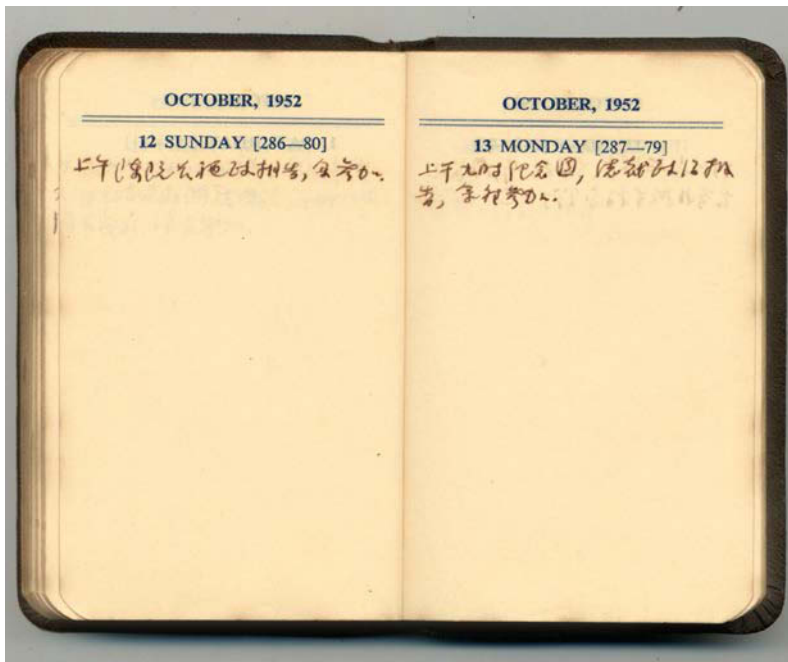 OCTOBER, 1952
12 SUNDAY [286—80]
上午陳院長施政報告,余參加.
OCTOBER, 1952
13 MONDAY [287—79]
上午九时纪念週,政治报
告,余往參加.